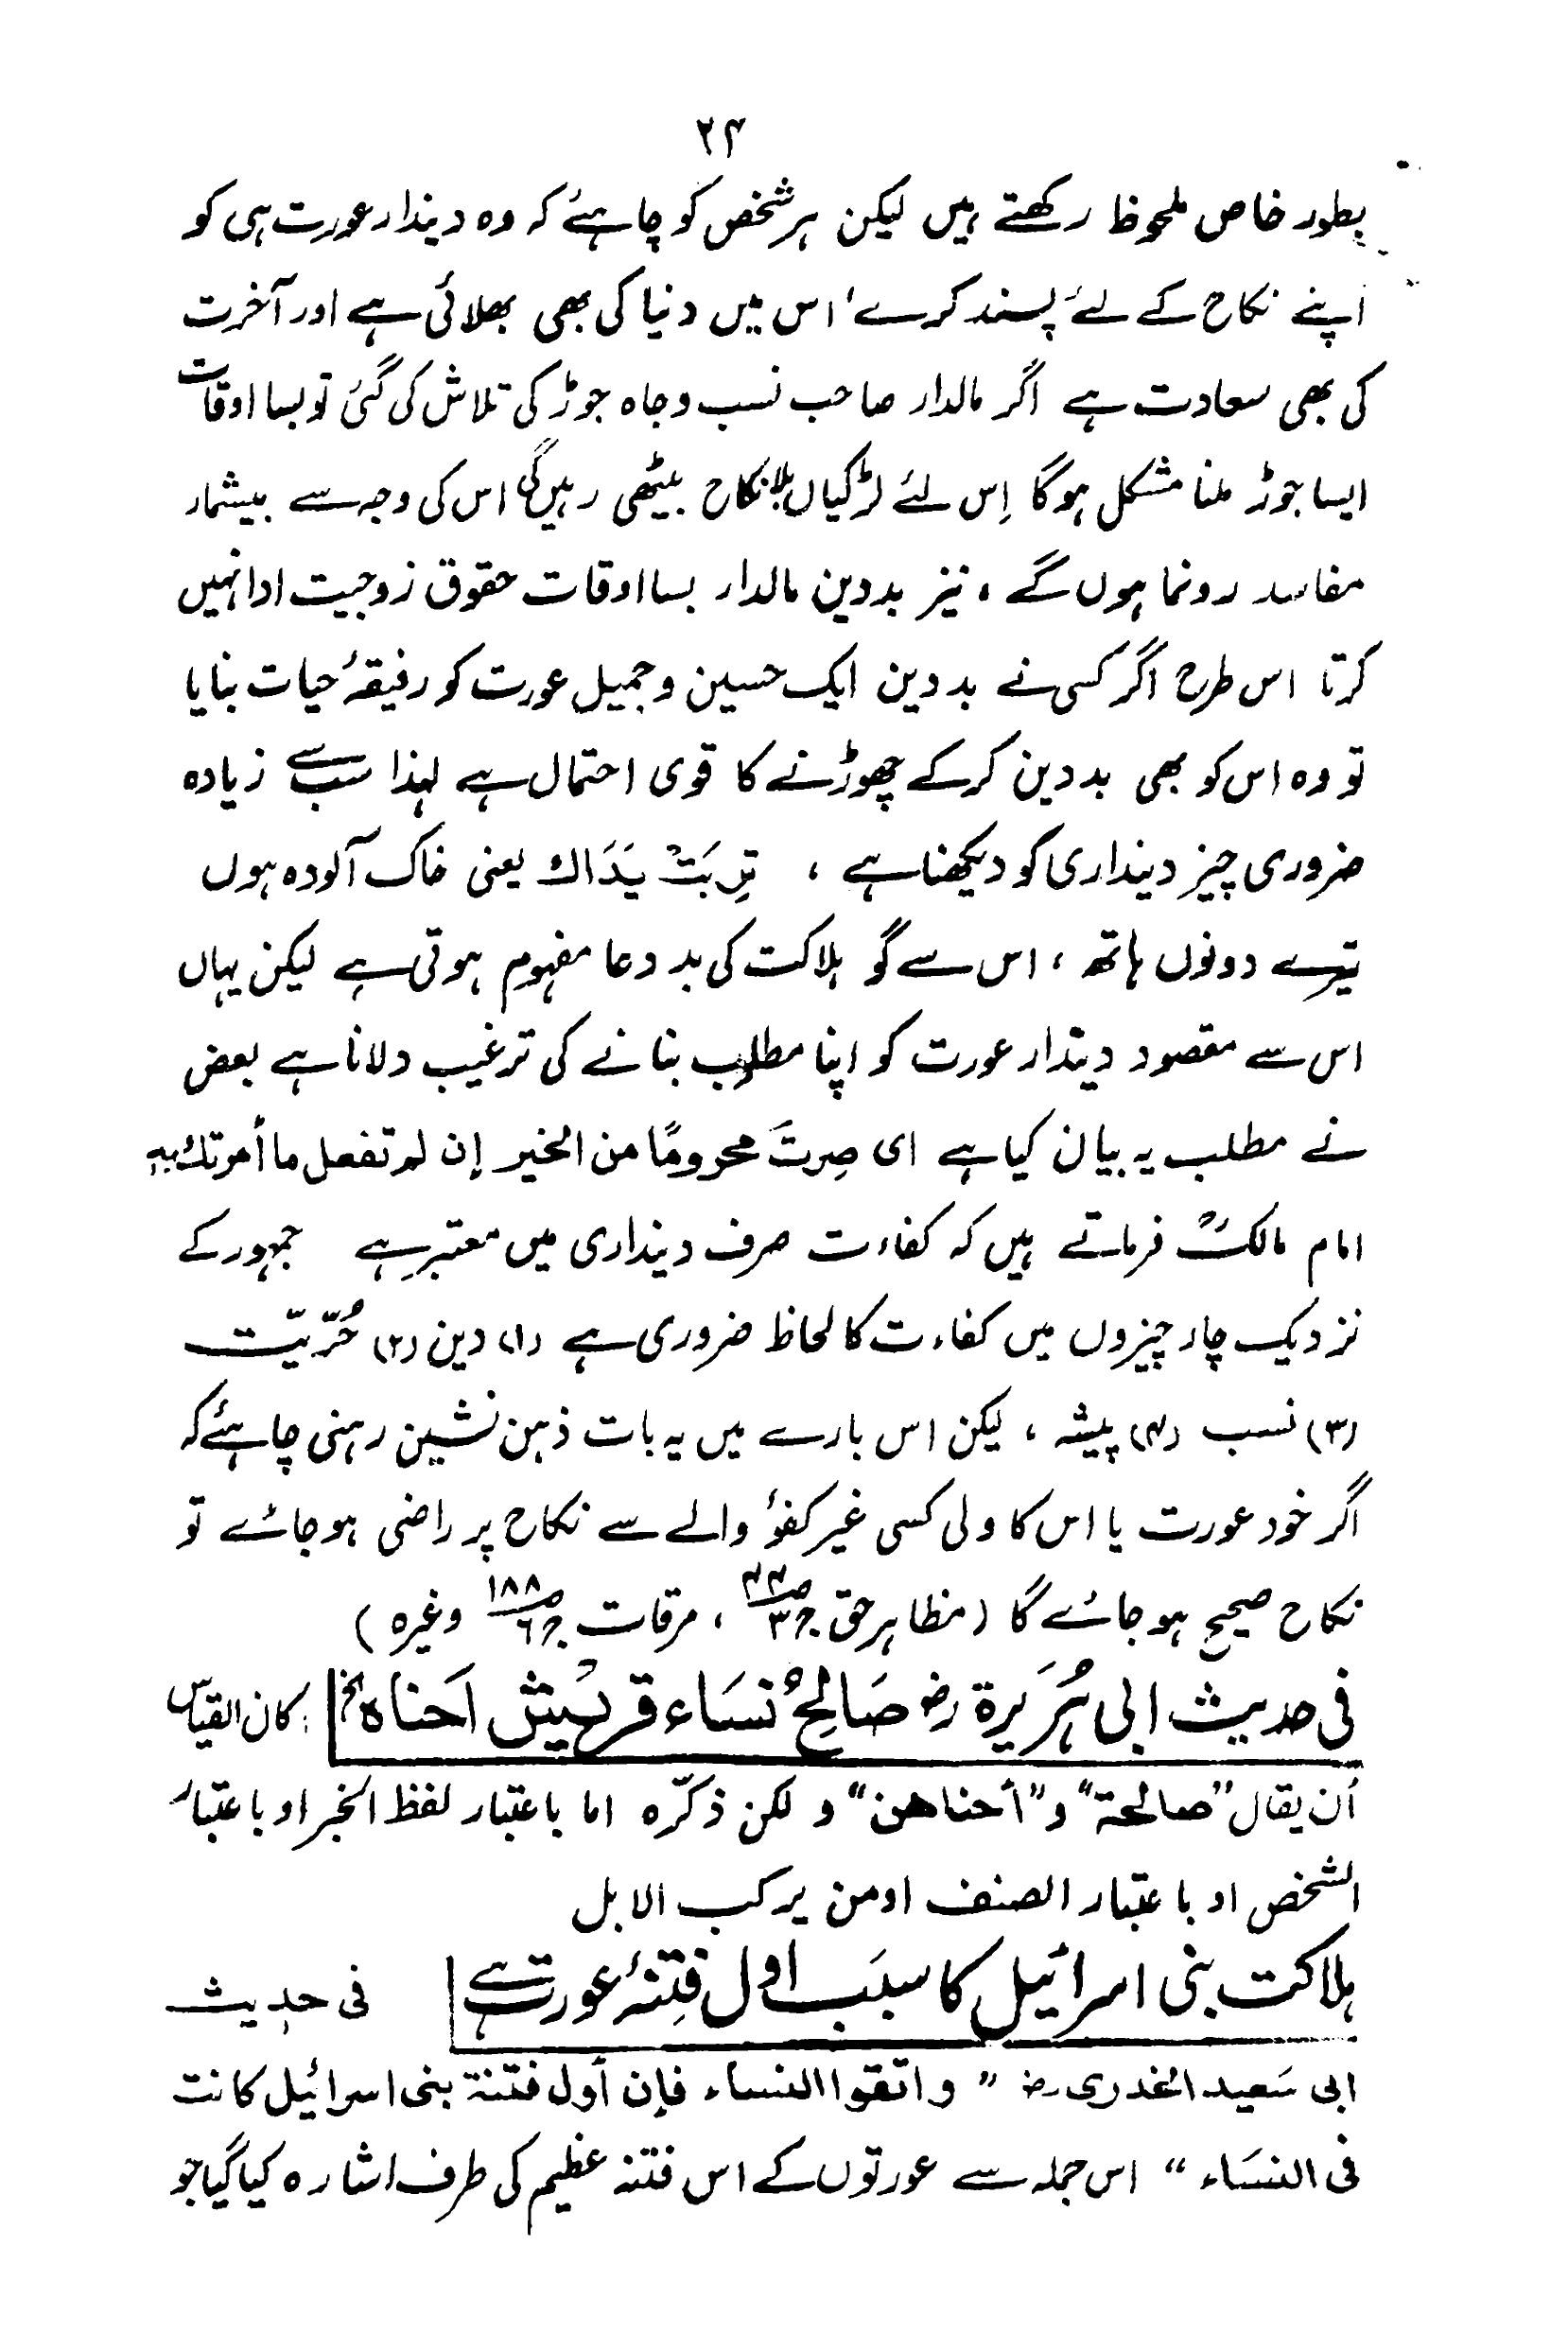 ۲۴
بطور خاص ملحوظ رکھتے ہیں لیکن ہر شخص کو چاہئے کہ وہ دیندار عورت ہی کو
اپنے نکاح کے لئے پسند کرے، اس میں دنیا کی بھی بھلائی ہے اور آخرت
کی بھی سعادت ہے اگر مالدار صاحب نسب وجاہ جوڑ کی تلاش کی گئی تو بسا اوقات
ایسا جوڑ ملنا مشکل ہوگا اِس لئے لڑکیاں بلا نکاح بیٹھی رہیں گی اس کی وجہ سے بیشمار
مفاسد رونما ہوں گے، نیز بددین مالدار بسا اوقات حقوق زوجیت ادا نہیں
کرتا اس طرح اگر کسی نے بددین ایک حسین وجمیل عورت کو رفیقۂ حیات بنایا
تو وہ اس کو بھی بددین کرکے چھوڑنے کا قوی احتمال ہے لہذا سب سے زیادہ
ضروری چیز دینداری کو دیکھنا ہے ، تَرِبَتْ یَدَاك یعنی خاک آلودہ ہوں
تیرے دونوں ہاتھ، اس سے گو ہلاکت کی بد دعا مفہوم ہوتی ہے لیکن یہاں
اس سے مقصود دیندار عورت کو اپنا مطلوب بنانے کی ترغیب دلانا ہے بعض
نے مطلب یہ بیان کیا ہے ای صِرتَ محرومًا من الخیر إن لم تفعل ما أمرتك بہ
امام مالکؒ فرماتے ہیں کہ کفاءت صرف دینداری میں معتبر ہے جمہور کے
نزدیک چار چیزوں میں کفاءت کا لحاظ ضروری ہے (۱) دین (۲) حُرّیّت
(۳) نسب (۴) پیشہ ، لیکن اس بارے میں یہ بات ذہن نشین رہنی چاہئے کہ
اگر خود عورت یا اس کا ولی کسی غیر کفوٴ والے سے نکاح پر راضی ہوجائے تو
نکاح صحیح ہوجائے گا (مظاہر حق ج۳ ص۴۴ ، مرقات ج۶ ص۱۸۸ وغیرہ )
فی حدیث ابی ہُرَیرة رضؓ صَالِحُ نسَاء قریش اَحناہ الخ : کان القیاس
أن یقال ”صالحة“ و ”أحناهن“ و لکن ذکّرہ اما باعتبار لفظ الخبر او باعتبار
الشخص او باعتبار الصنف او من یرکب الابل
ہلاکت بنی اسرائیل کا سبَب اول فِتنۂ عورت ہے فی حدیث
ابی سَعید الخدری رضؓ ” واتقوا النساء فإن أول فتنة بنی اسرائیل کانت
فی النسَاء “ اس جملہ سے عورتوں کے اس فتنہ عظیم کی طرف اشارہ کیا گیا جو